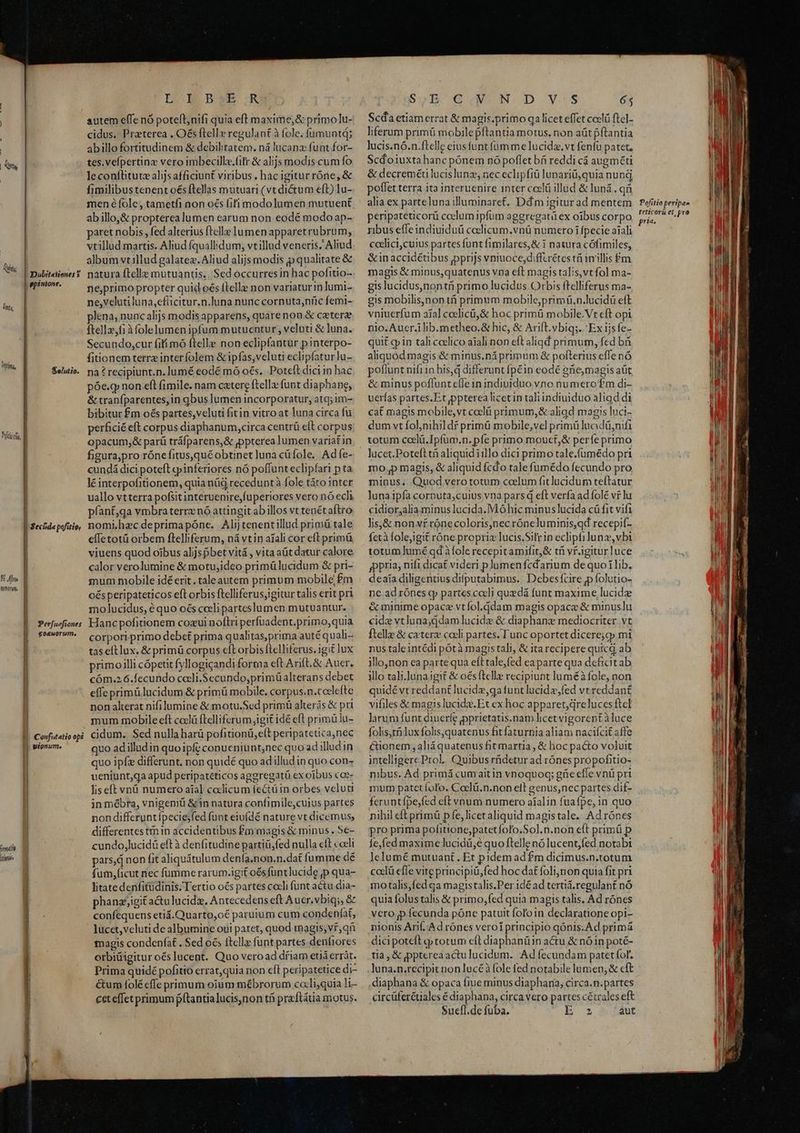 LIBER
autem esse nó potest, nisi quia est maxime, & primo lu-
cidus. Præterea. Oés stellæ regulant̃ à sole. sumuntq;
ab illo fortitudinem & debilitatem. ná lucanæ sunt for-
tes. vespertinæ vero imbecillæ. sit̃ & alijs modis cum so
le constitutæ alijs afficiunt viribus. hac igitur róne, &
similibus tenent oés stellas mutuari (vt dictum est) lu-
men é sole, tametsi non oés sit̃ modo lumen mutuent̃
ab illo, & propterea lumen earum non eodé modo ap-
paret nobis, sed alterius stellæ lumen apparet rubrum,
vt illud martis. Aliud squallidum, vt illud veneris. Aliud
album vt illud galateæ. Aliud alijs modis ꝓ qualitate &
Dubitationes ĩ natura stellæ mutuantis. Sed occurres in hac positio-
opinione. ne, primo propter quid oés stellæ non variatur in lumi-
ne, veluti luna, efficitur. n. luna nunc cornuta, núc semi-
plena, nunc alijs modis apparens, quare non & cæteræ
stellæ, si à sole lumen ipsum mutuentur, veluti & luna.
Secundo, cur sit̃ mó stellæ non eclipsantur p interpo-
sitionem terræ inter solem & ipsas, veluti eclipsatur lu-
Solutio. na? recipiunt. n. lumé eodé mó oés. Potest dici in hac
póe. ꝙ non est simile. nam cæteræ stellæ sunt diaphanę,
& transparentes, in qbus lumen incorporatur, atq; im-
bibitur ẜm oés partes, veluti fit in vitro at luna circa sú
perficié est corpus diaphanum, circa centrú est corpus
opacum, & parú trásparens, & ꝓpterea lumen variat̃ in
figura, pro róne situs, qué obtinet luna cú sole. Ad se-
cundá dici potest ꝙ inferiores nó possunt eclipsari p ta
lé interpositionem, quia núq̃ recedunt à sole táto inter
uallo vt terra possit interuenire, superiores vero nó ecli
psant̃, qa vmbra terræ nó attingit ab illos vt tenét astro
Secúda positio. nomi. hæc de prima póne. Alij tenent illud primú tale
esse totú orbem stelliferum, ná vt in aíali cor est primú
viuens quod oibus alijs p̃bet vitá, vita aút datur calore
calor vero lumine & motu, ideo primú lucidum & pri-
mum mobile idé erit. tale autem primum mobile ẜm
oés peripateticos est orbis stelliferus, igitur talis erit pri
mo lucidus, é quo oés cœli partes lumen mutuantur.
Persuasiones Hanc positionem coæui nostri persuadent. primo, quia
coæuorum. corpori primo debet̃ prima qualitas, prima auté quali-
tas est lux. & primú corpus est orbis stelliferus. igit̃ lux
primo illi cópetit syllogiçandi forma est Arist. & Auer.
cóm. 26. secundo cœli. Secundo, primú alterans debet
esse primú lucidum & primú mobile. corpus. n. cœleste
non alterat nisi lumine & motu. Sed primú alterás & pri
mum mobile est cœlú stelliferum, igit̃ idé est primú lu-
Confutatio opi cidum. Sed nulla harú positionú, est peripatetica, nec
nionum. quo ad illud in quo ipsę conueniunt, nec quo ad illud in
quo ipsæ differunt. non quidé quo ad illud in quo con-
ueniunt, qa apud peripatéticos aggregatú ex oibus cœ-
lis est vnú numero aíal cœlicum sectú in orbes veluti
in mébra, vnigenitú & in natura consimile, cuius partes
non differunt specie, sed sunt eiusdé naturę vt dicemus,
differentes tñ in accidentibus ẜm magis & minus. Se-
cundo, lucidú est à densitudine partiú, sed nulla est cœli
pars, q̃ non sit aliquátulum densa. non. n. dat̃ summe dé
sum, sicut nec summe rarum. igit̃ oés sunt lucidę p qua-
litate densitúdinis. Tertio oés partes cœli sunt actu dia-
phanæ, igit̃ actu lucidæ. Antecedens est Auer. vbiq;, &
consequens etiá. Quarto, oé paruium cum condensat̃,
lucet, veluti de albumine oui patet, quod magis, vr̃, qñ
magis condensat̃. Sed oés stellæ sunt partes densiores
orbiú igitur oés lucent. Quo vero ad dr̃iam etiá errát.
Prima quidé positio errat, quia non est peripatetice di-
ctum solé esse primum oium mébrorum cœli, quia li-
cet esset primum p̃stantia lucis, non tñ præstátia motus.
SECVNDVS 65
Scd́a etiam errat & magis. primo qa licet esset cœlú stel-
liferum primú mobile p̃stantia motus, non aút p̃stantia
lucis. nó. n. stellę eius sunt summe lucidæ. vt sensu patet.
Scd́o iuxta hanc pónem nó posset bñ reddi cá augméti
& decreméti lucis lunæ, nec eclipsiú lunariú, quia nunq̃
posset terra ita interuenire inter cœlú illud & luná. qñ
alia ex parte luna illuminaret̃. Dd́m igitur ad mentem Positio peripa=
peripateticorú cœlum ipsum aggregatú ex oibus corpo teticorú et pro
ribus esse indiuiduú cœlicum. vnú numero ĩ specie aíali pria.
cœlici, cuius partes sunt similares, & ĩ natura cósimiles,
& in accidétibus ꝓprijs vniuoce, differétes tñ in illis ẜm
magis & minus, quatenus vna est magis talis, vt sol ma-
gis lucidus, non tñ primo lucidus. Orbis stelliferus ma-
gis mobilis, non tñ primum mobile, primú. n. lucidú est
vniuersum aíal cœlicú, & hoc primú mobile. Vt est opi
nio. Auer. ĩ lib. metheo. & hic, & Arist. vbiq;. Ex ijs se-
quit̃ ꝙ in tali cœlico aíali non est aliqd primum, sed bñ
aliquod magis & minus. ná primum & posterius esse nó
possunt nisi in his, q̃ differunt spéin eodé gñe, magis aút
& minus possunt esse in indiuiduo vno numero ẜm di-
uersas partes. Et ꝓpterea licet in tali indiuiduo aliqd di
cat̃ magis mobile, vt cœlú primum, & aliqd magis luci-
dum vt sol, nihil dr̃ primú mobile, vel primú lucidú, nisi
totum cœlú. Ipsum. n. p se primo mouet̃, & per se primo
lucet. Potest tñ aliquid ĩ illo dici primo tale. sumédo pri
mo ꝓ magis, & aliquid scd́o tale sumédo secundo pro
minus. Quod vero totum cœlum sit lucidum testatur
luna ipsa cornuta, cuius vna pars q̃ est versa ad solé vr̃ lu
cidior, alia minus lucida. Mó hic minus lucida cú sit visi
lis, & non vr̃ róne coloris, nec róne luminis, qd́ recepis-
set à sole, igit̃ róne propriæ lucis. Silr in eclipsi lunæ, vbi
totum lumé qd́ à sole recepit amisit, & tñ vr̃. igitur luce
ꝓpria, nisi dicat̃ videri p lumen scd́arium de quo ĩ lib.
de aía diligentius disputabimus. Debes scire ꝓ solutio-
ne ad rónes ꝙ partes cœli quædá sunt maxime lucidæ
& minime opacæ vt sol. qdam magis opacæ & minus lu
cidæ vt luna, qdam lucidæ & diaphanæ mediocriter. vt
stellæ & cæteræ cœli partes. Tunc oportet dicere, ꝙ mi
nus tale intédi pót à magis tali, & ita recipere quicq̃ ab
illo, non ea parte qua est tale, sed ea parte qua deficit ab
illo tali. luna igit̃ & oés stellæ recipiunt lumé à sole, non
quidé vt reddant̃ lucidæ, qa sunt lucidæ, sed vt reddant̃
visiles & magis lucidæ. Et ex hoc apparet, q̃re luces stel
larum sunt diuersę ꝓprietatis. nam licet vigorent̃ à luce
solis, tñ lux solis, quatenus sit saturnia aliam nacifcit̃ affe
ctionem, aliá quatenus sit martia, & hoc pacto voluit
intelligere Ptol. Quibus rñdetur ad rónes propositio-
nibus. Ad primá cum ait in vnoquoq; gñe esse vnú pri
mum patet solo. Cœlú. n. non est genus, nec partes dif-
ferunt spe, sed est vnum numero aíal in sua spe, in quo
nihil est primú p se, licet aliquid magis tale. Ad rónes
pro prima positione, patet solo. Sol. n. non est primú p
se, sed maxime lucidú, é quo stellę nó lucent, sed notabi
le lumé mutuant̃. Et p idem ad ẜm dicimus. n. totum
cœlú esse vitę principiú, sed hoc dat̃ soli, non quia sit pri
mo talis, sed qa magis talis. Per idé ad tertiá. regulant̃ nó
quia solus talis & primo, sed quia magis talis. Ad rónes
vero ꝓ secunda póne patuit solo in declaratione opi-
nionis Arist. Ad rónes vero ĩ principio qónis. Ad primá
dici potest ꝙ totum est diaphanú in actu & nó in poté-
tia, & ꝓpterea actu lucidum. Ad secundam patet sol.
luna. n. recipit non lucé à sole sed notabile lumen, & est
diaphana & opaca siue minus diaphana, circa. n. partes
circúferétiales é diaphana, circa vero partes cétrales est
Suess. de suba. E 2 aut